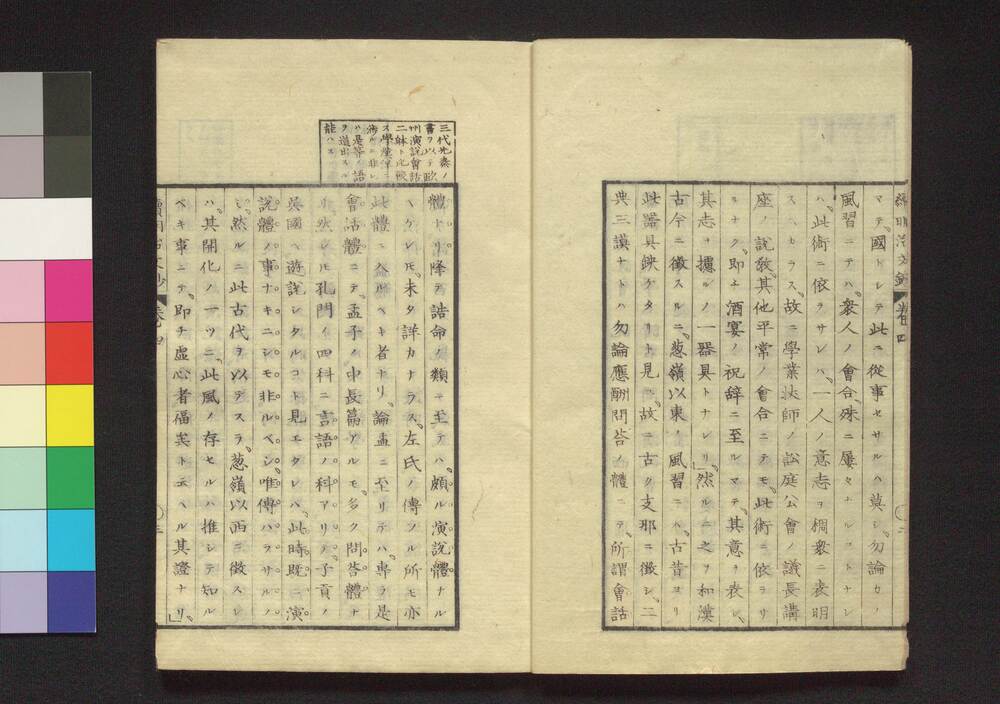 マテ、國トシテ此ニ從事セサルハ莫シ、勿論カノ
風習ニテハ、衆人ノ會合、殊ニ屢々ナルコトナレ
ハ、此術ニ依ラサレハ、一人ノ意志ヲ稠衆ニ表明
スヘカラス、故ニ學業ノ師ノ訟庭公會ノ議長講
座ノ說敎、其他平常ノ會合ニテモ、此術ニ依ラサ
ルナク、即チ酒宴ノ祝辞ニ至ルマテ、其意ヲ表シ、
其志ヲ攄ルノ一器具トナレリ」然ルニ之ヲ和漢
古今ニ徵スルニ、葱嶺以東ノ風習ニハ、古昔ヨリ
此器具缺ケタリト見ユ、故ニ古ク支那ニ徵シ、二
典三謨ナトハ勿論應酬問答ノ體ニテ、所謂會話
體ナリ、降テ誥命ノ類ニ至テハ、頗ル演說體ナル
ヘケレモ、未タ詳カナラス、左氏ノ傳フル所モ亦
此體ニ入ルヘキ者ナリ、論孟ニ至リテハ、專ラ是
會話體ニテ、孟子ノ中長篇アルモ、多ク問答體ナ
リ、然レモ孔門ノ四科ニ言語ノ科アリテ、子貢ノ
吳國ヘ遊說シタルコト見エタレハ、此時既ニ演
說體ノ事ナキニシモ非ルベシ、唯傳ハラサルノ
ミ、然ルニ此古代ヲ以テスラ、葱嶺以西ニ徵スレ
ハ、其開化ノ一ツニ、此風ノ存セルハ推シテ知ル
ベキ事ニテ、即チ虛心者福矣ト云ヘル其證ナリ」
三代先秦ノ
書ヲ以テ歐
州演說會話
二躰ト比較
ス學殖淳ニ
海ルニ非レ
ハ是等ノ語
ヲ道出スル
能ハス
卷四